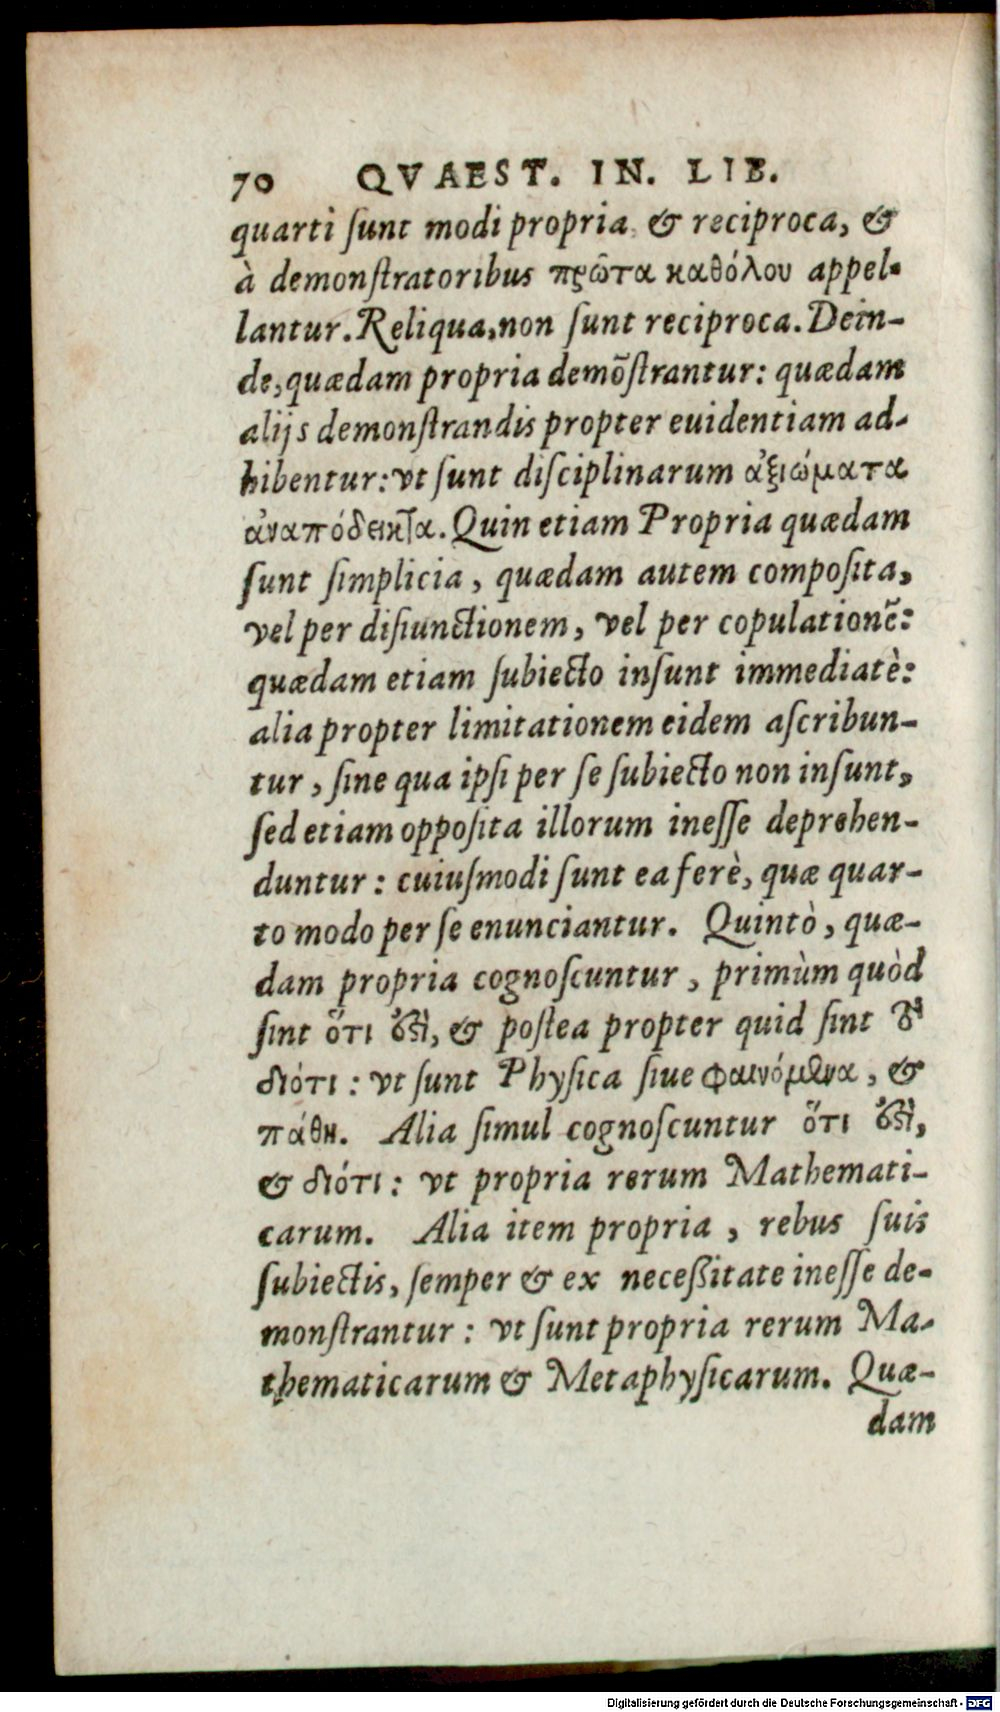 70 QVAEST. IN. LIB.
quarti ſunt modi propria & reciproca, &
à demonſtratoribus πρῶτα καθόλου appel-
lantur. Reliqua, non ſunt reciproca. Dein-
de, quædam propria demõſtrantur: quædam
alijs demonſtrandis propter euidentiam ad-
hibentur: vt ſunt diſciplinarum ἀξιώματα
ἀναπόδεικτα. Quin etiam Propria quædam
ſunt ſimplicia, quædam autem compoſita,
vel per diſiunctionem, vel per copulationẽ:
quædam etiam ſubiecto inſunt immediatè:
alia propter limitationem eidem aſcribun-
tur, ſine qua ipſi per ſe ſubiecto non inſunt,
ſed etiam oppoſita illorum ineſſe deprehen-
duntur: cuiuſmodi ſunt ea ferè, quæ quar-
to modo per ſe enunciantur. Quintò, quæ-
dam propria cognoſcuntur, primùm quòd
ſint ὅτι ἐστὶ, & poſtea propter quid ſint
διότι: vt ſunt Phyſica ſiue φαινόμενα, &
πάθη. Alia ſimul cognoſcuntur ὅτι ἐστὶ,
& διότι: vt propria rerum Mathemati-
carum. Alia item propria, rebus ſuis
ſubiectis, ſemper & ex neceßitate ineſſe de-
monſtrantur: vt ſunt propria rerum Ma-
thematicarum & Metaphyſicarum. Quæ-
dam
Digitalisierung gefördert durch die Deutsche Forschungsgemeinschaft - DFG